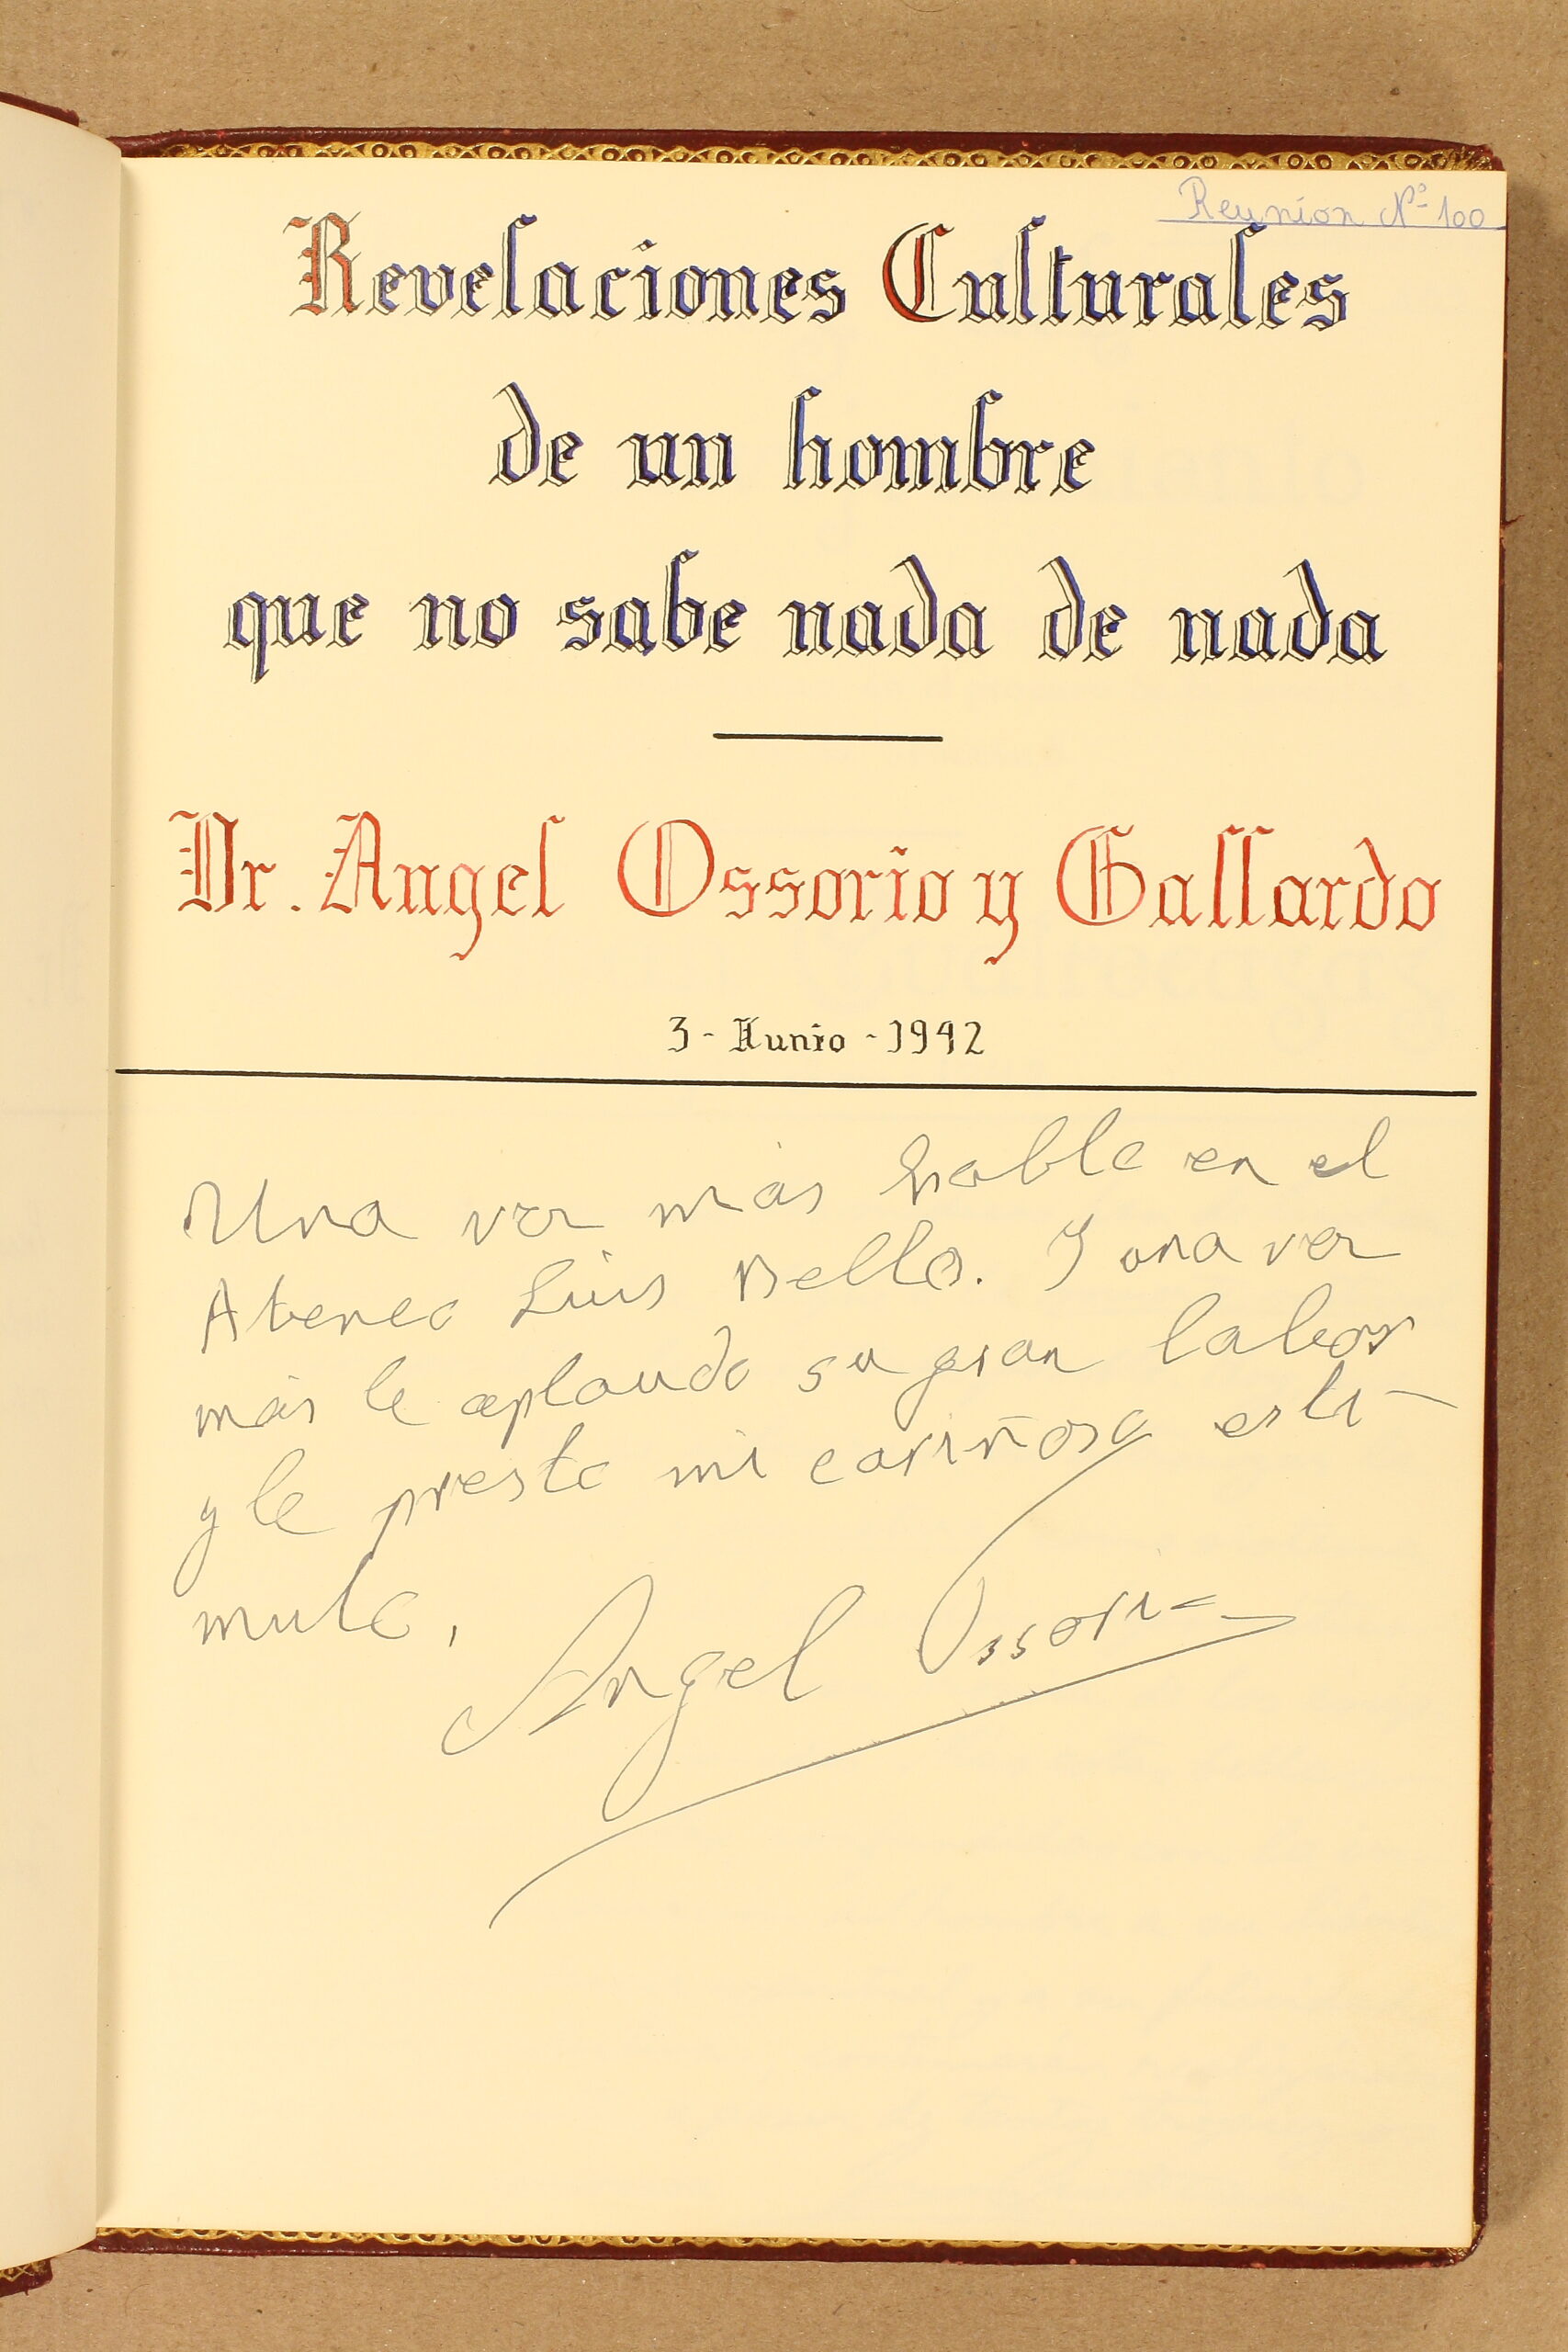 Reunion Nº 100
Revelaciones Culturales
de un hombre
que no sabe nada de nada
Dr. Angel Ossorio y Gallardo
3 - Junio - 1942
Una vez más hablo en el
Ateneo Luis Bello. Y una vez
más le aplaudo su gran labor
y le presto mi cariñoso estí-
mulo.
Angel Ossorio